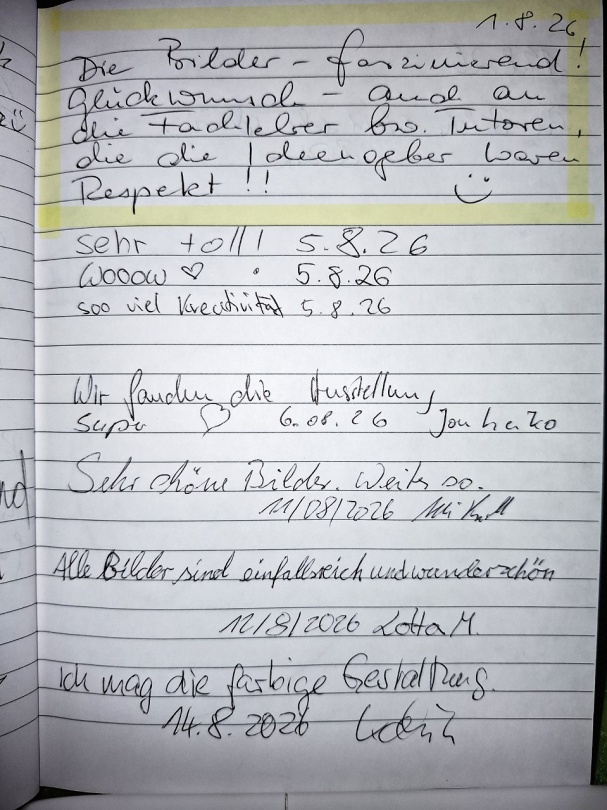 1.8.26
Die Bilder – faszinierend!
Glückwunsch – auch an
die Fachlehrer bzw. Tutoren,
die die Ideengeber waren
Respekt!!
sehr toll! 5.8.26
WOOOW ♡ 5.8.26
soo viel Kreativität 5.8.26
Wir fanden die Ausstellung
super ♡ 6.08.26
Sehr schöne Bilder. Weiter so.
11/08/2026
Alle Bilder sind einfallsreich und wunderschön
12/8/2026 Lotta M.
Ich mag die farbige Gestaltung.
14.8.2026